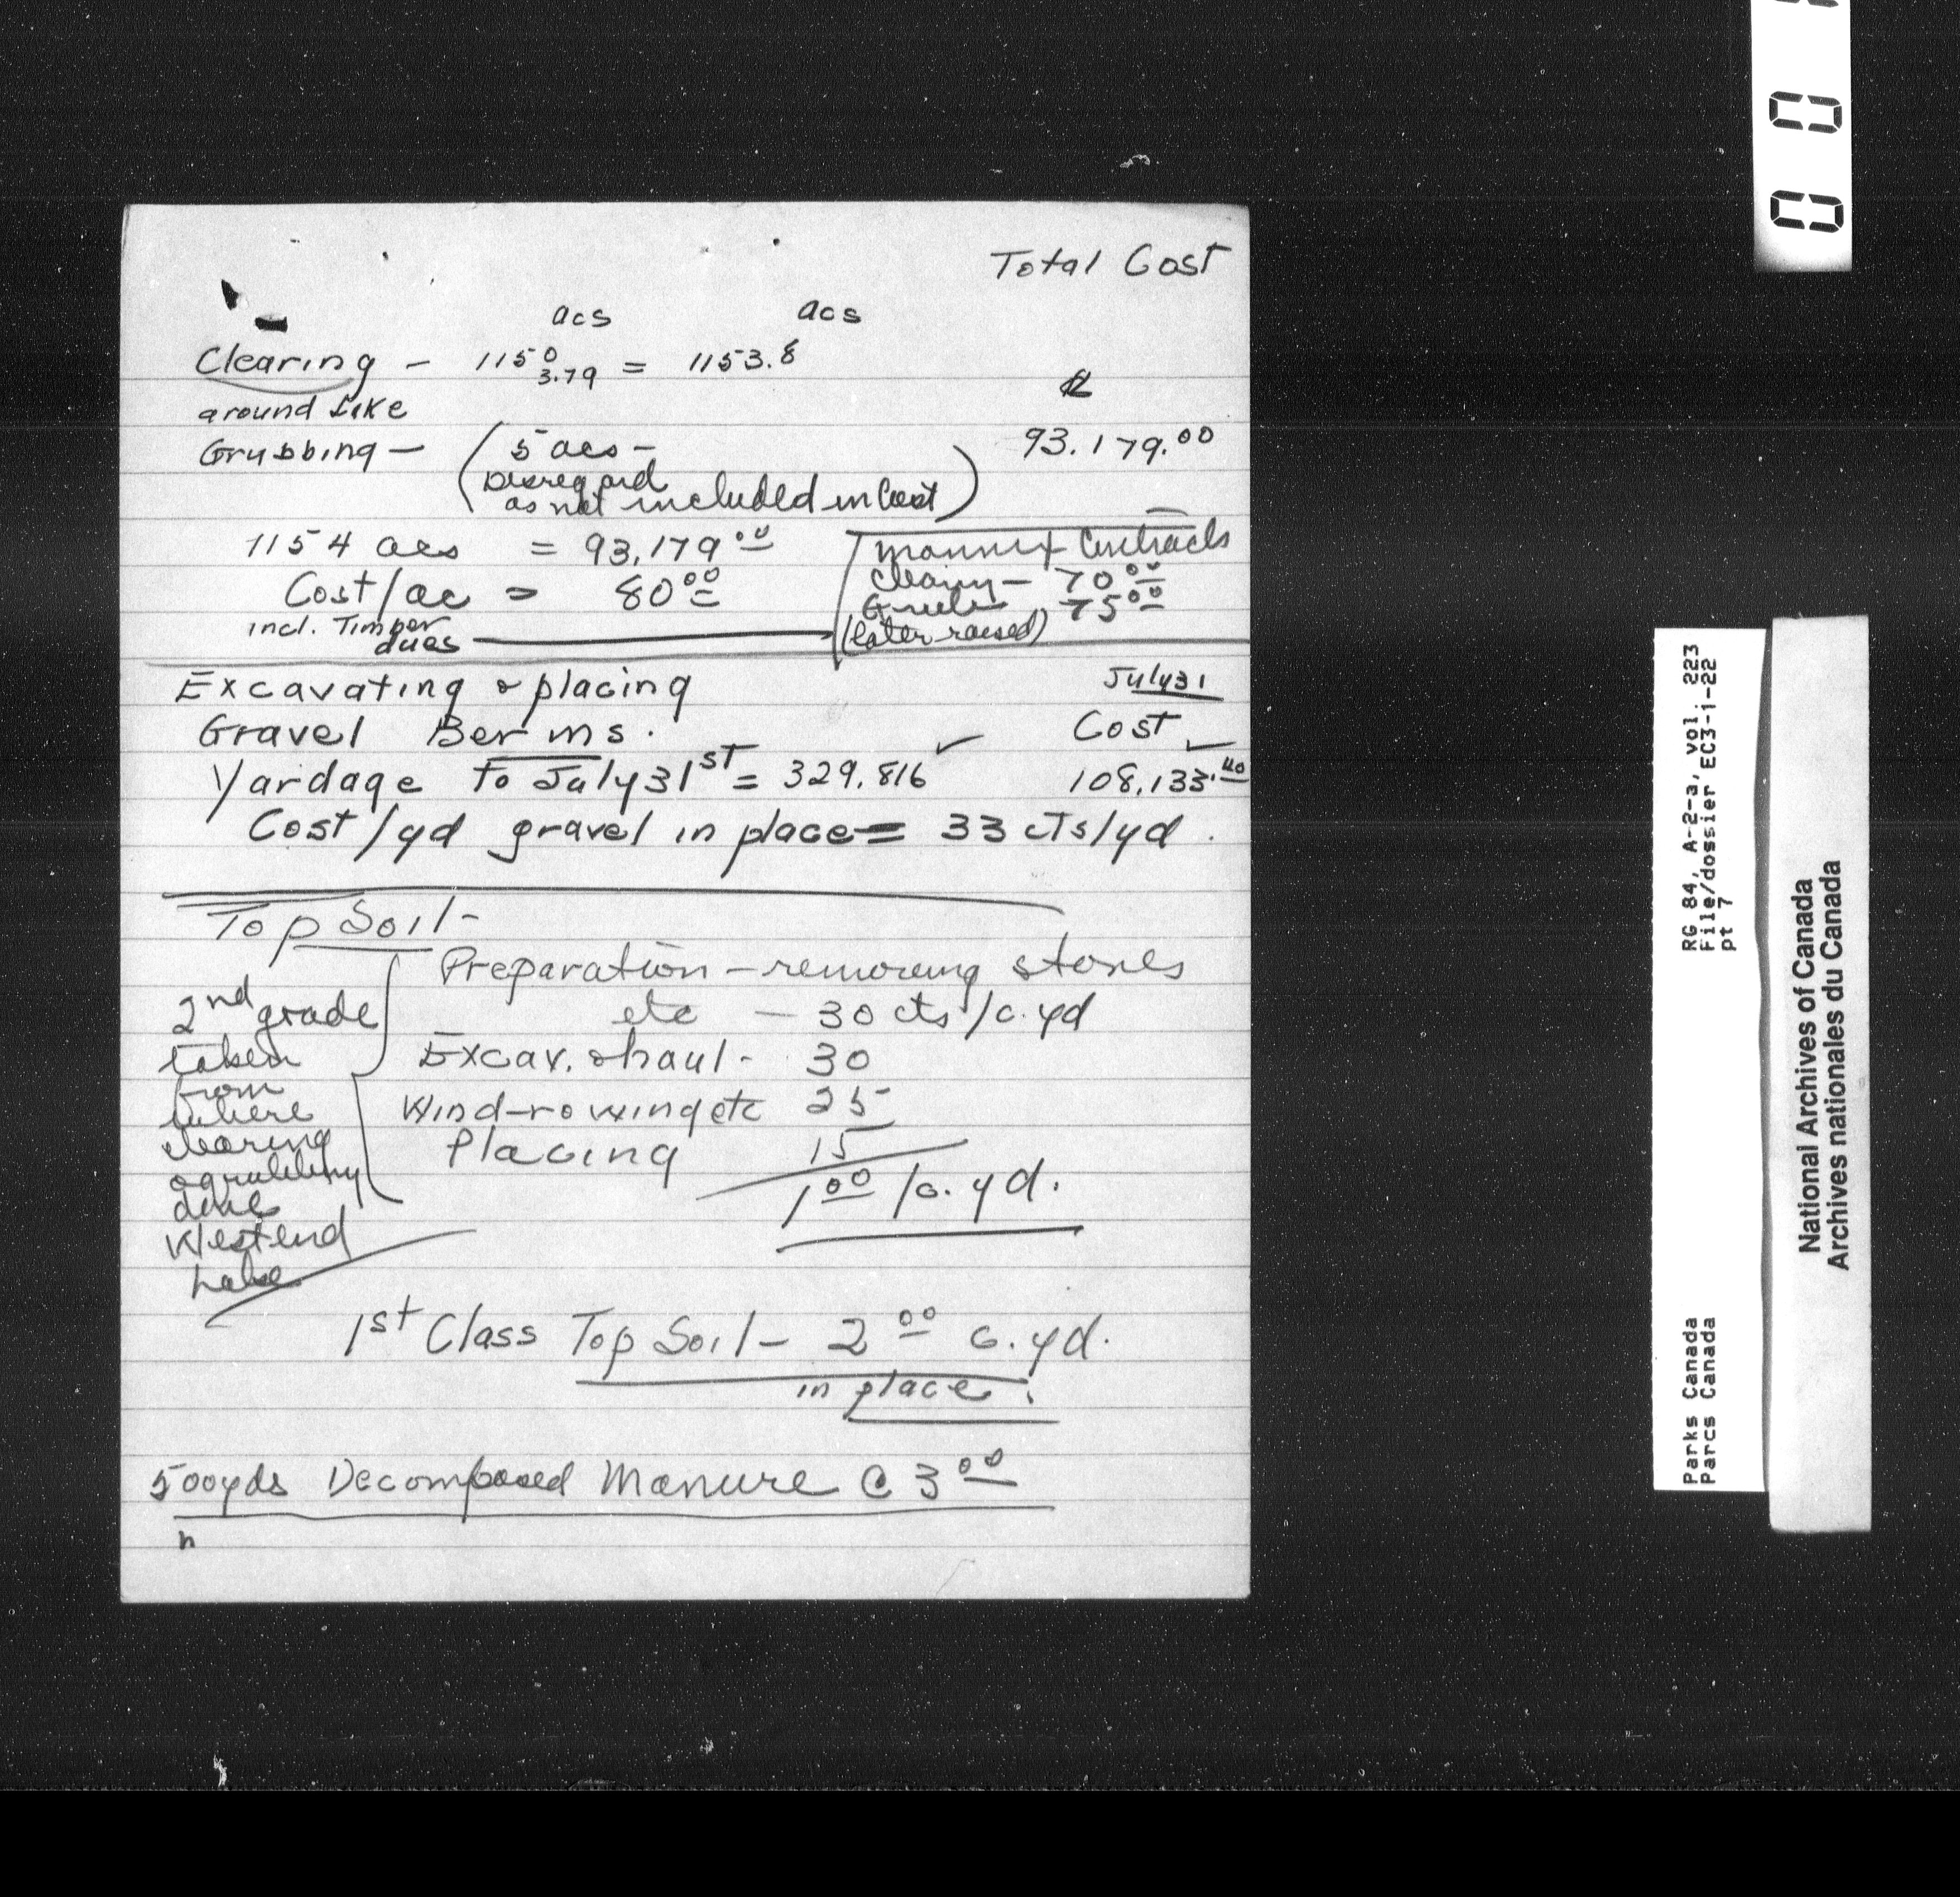 Total Cost
acs acs
Clearing - 1150 3.79 = 1153.8
around Lake
Grubbing - (5 acs - 93.179.00
Disregard
as not included in Cost)
1154 acs = 93,179.00
Mannix Contracts
Cost/ac = 80.00
Clearing - 70.00
Grub 75.00
incl. Timber
dues
(later raised)
Excavating & placing July 31
Gravel Berms. Cost
Yardage to July 31st = 329.816 ✓ 108,133.40 ✓
Cost/yd gravel in place = 33 cts/yd.
Top Soil -
Preparation - removing stones
etc - 30 cts/c.yd
Excav. & haul - 30
Wind-rowing etc 25
Placing 15
1.00 /c.yd.
2nd grade
taken
from
where
clearing
& grubbing
done
West end
Lake
1st Class Top Soil - 2.00 c.yd.
in place.
500yds Decomposed Manure @ 3.00
n
0 0
RG 84, A-2-a, vol. 223
File/dossier EC3-1-22
pt 7
Parks Canada
Parcs Canada
National Archives of Canada
Archives nationales du Canada